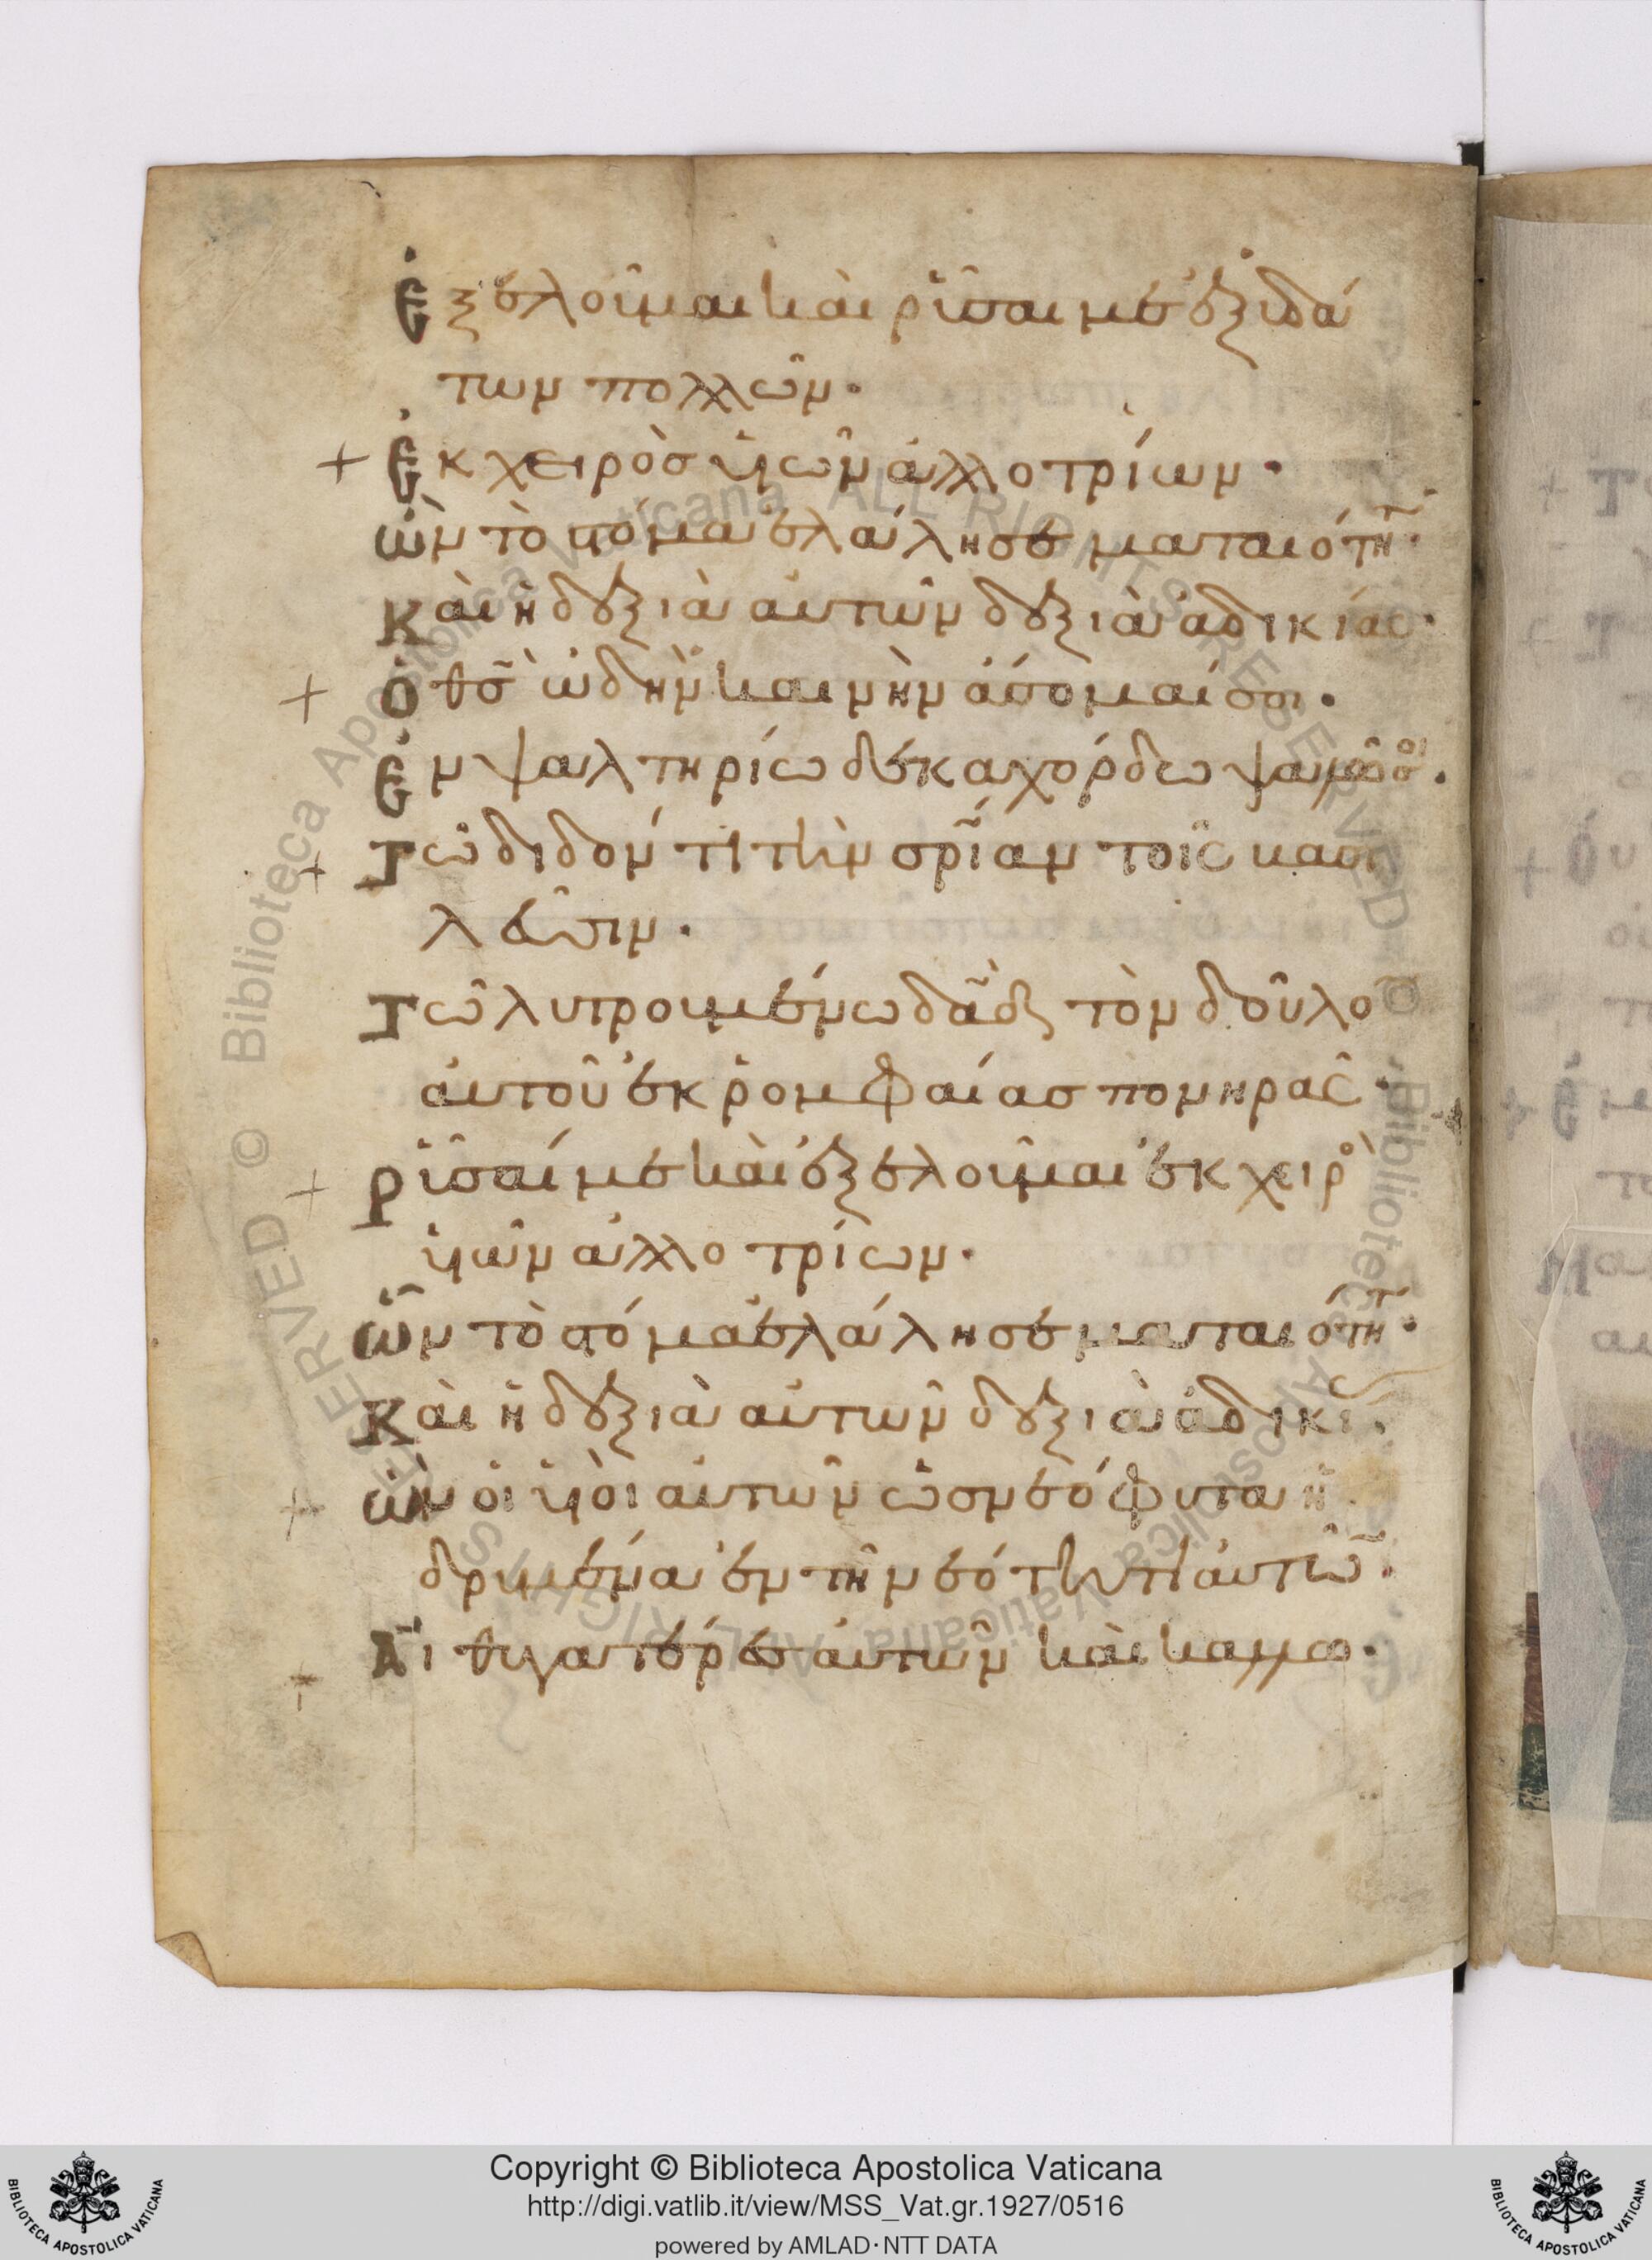 ἐξελοῦμαι καὶ ρῦσαί με ἐξ ὑδά
των πολλῶν·
+ ἐκ χειρὸσ υἱῶν ἀλλοτρίων·
ὧν τὸ στόμα ἐλάλησε ματαιότητ·
Καὶ ἡ δεξιὰ αὐτῶν δεξιὰ ἀδικίασ·
+ ὁ θσ ὠδὴν καινὴν ἄσομαί σοι·
ἐν ψαλτηρίω δεκαχόρδω ψαλῶ σοι·
+ Τῶ διδόντι τὴν σρίαν τοῖσ βασι
λεῦσιν·
Τῶ λυτρουμένω δαδ τὸν δοῦλο
αὐτοῦ ἐκ ῥομφαίασ πονηρᾶσ·
+ ρῦσαί με καὶ ἐξελοῦμαι ἐκ χειρὸ
υἱῶν ἀλλοτρίων·
ὧν τὸ στόμα ἐλάλησε ματαιότητ·
Καὶ ἡ δεξιὰ αὐτῶν δεξιὰ ἀδικί·
+ ὧν οἱ υἱοὶ αὐτῶν ὡσ νεόφυτα ἡ
δρυμένα ἐν τῆ νεότητι αὐτῶ·
+ Αἱ θυγατέρεσ αὐτῶν
Copyright © Biblioteca Apostolica Vaticana
http://digi.vatlib.it/view/MSS_Vat.gr.1927/0516
powered by AMLAD·NTT DATA
BIBLIOTECA APOSTOLICA VATICANA
BIBLIOTECA APOSTOLICA VATICANA